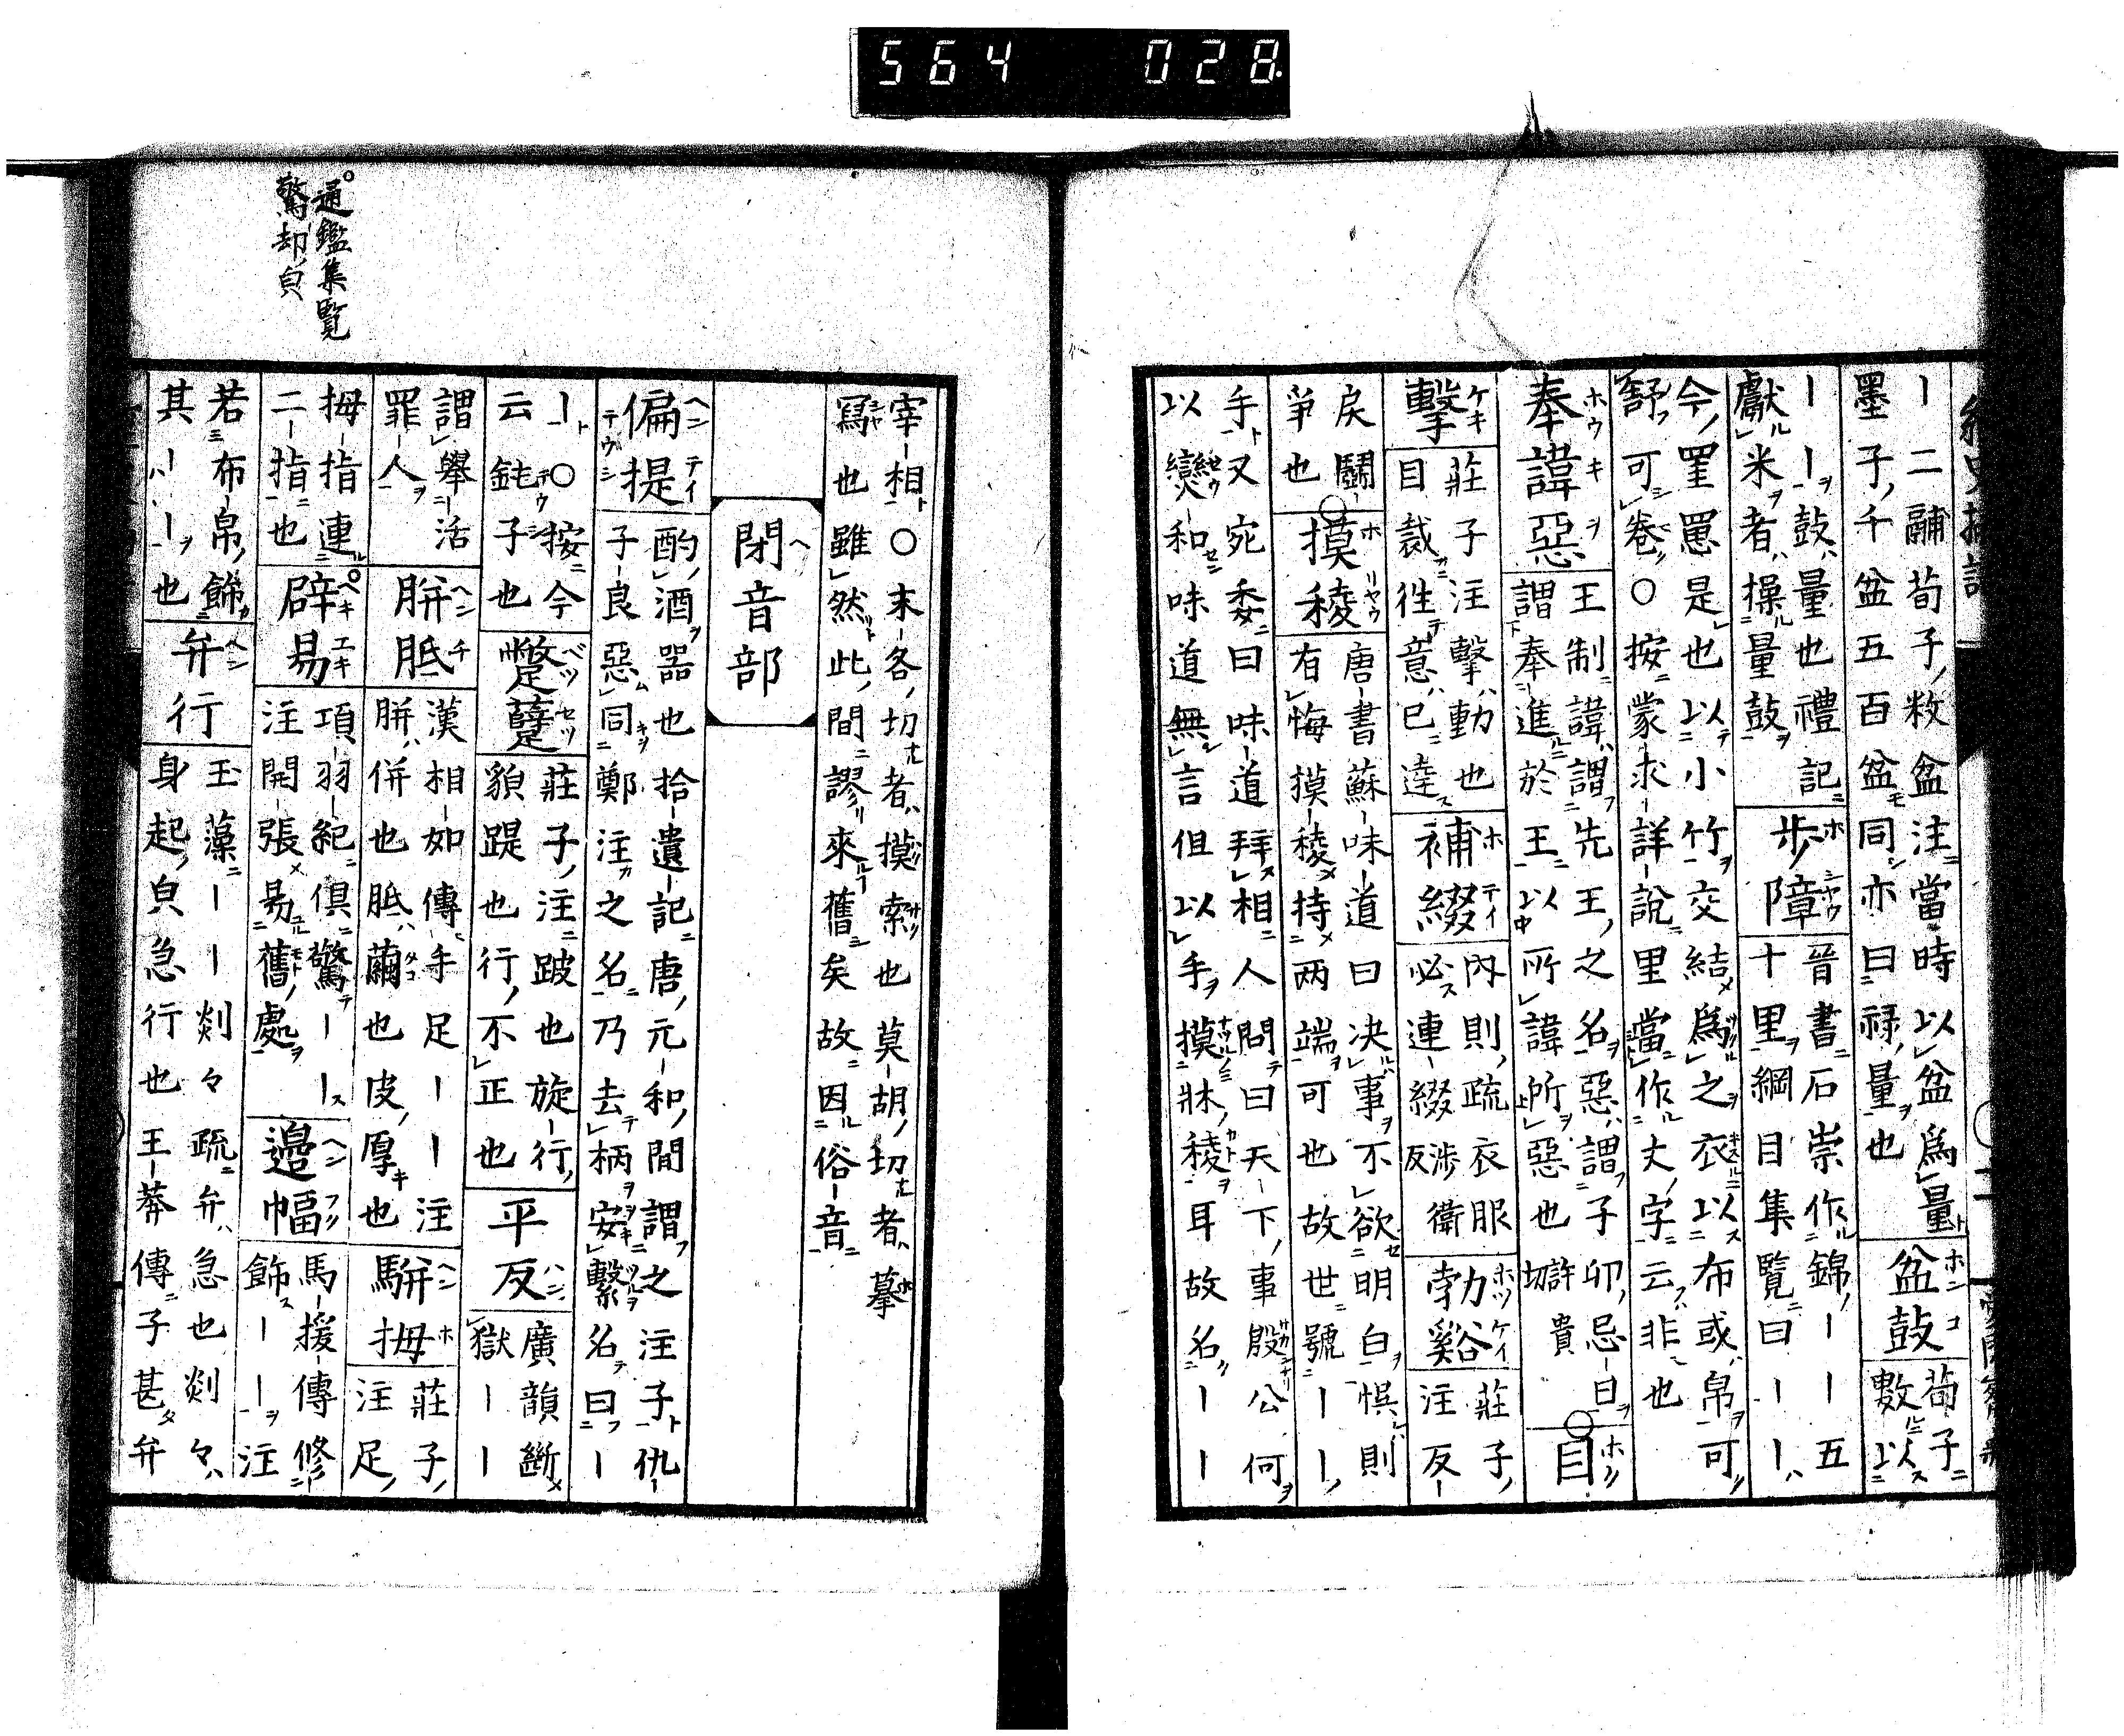 ｜二鬴荀子敉盆注當時以盆爲量
墨子千盆五百盆同亦曰祿量也
盆鼓
荀子
數以
｜｜鼓量也禮記
獻米者操量鼓
步障
晉書石崇作錦｜｜五
十里綱目集覽曰｜｜
今罣罳是也以小竹交結爲之衣以布或帛可
舒可卷○按蒙求詳說里當作丈字云非也
奉諱惡
王制諱謂先王之名惡謂子卯忌日
謂奉進於王以所諱所惡也許貴切
目
擊
莊子注擊動也
目裁往意已達
補綴
內則疏衣服
必連綴渉衛反
勃谿
莊子
注反
戾鬪
爭也
摸稜
唐書蘇味道曰决事不欲明白悞則
有悔摸稜持兩端可也故世號｜｜
手又宛委曰味道拜相人問曰天下事殷公何
以爕和味道無言但以手摸牀稜耳故名｜｜
宰相○末各切者摸索也莫胡切者摹
寫也雖然此間謬來舊矣故因俗音
閉音部
偏提
酌酒器也拾遺記唐元和間謂之注子仇
子良惡同鄭注之名乃去柄安繫名曰｜
｜○按今
云鈍子也
蹩躠
莊子注跛也旋行
貌踶也行不正也
平反
廣韻斷
獄｜｜
謂舉活
罪人
胼胝
漢相如傳手足｜｜注
胼併也胝繭也皮厚也
駢拇
莊子
注足
拇指連
二指也
辟易
項羽紀俱驚｜｜
注開張易舊處
通鑑集覽
驚却皃
邊幅
馬援傳修
飾｜｜注
若布帛餙
其｜｜也
弁行
玉藻｜｜剡々疏弁急也剡々
身起皃急行也王莽傳子甚弁
564 028